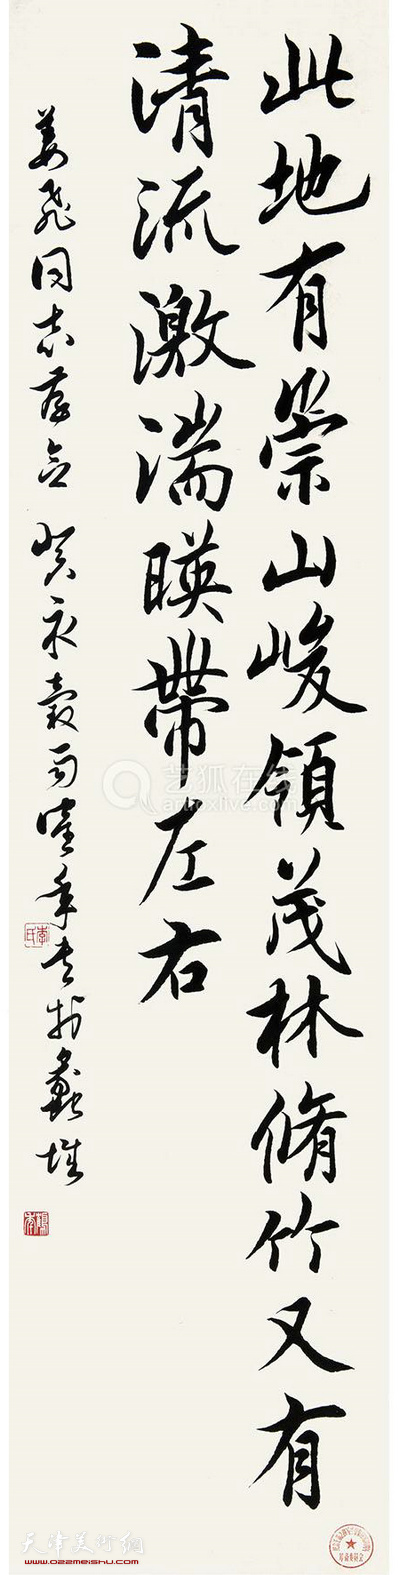 此地有崇山峻領茂林脩竹又有
清流激湍暎帶左右
姜飛同志存念 癸永穀雨
艺狐在线
artfoxlive.com
天津美术網
www.022meishu.com